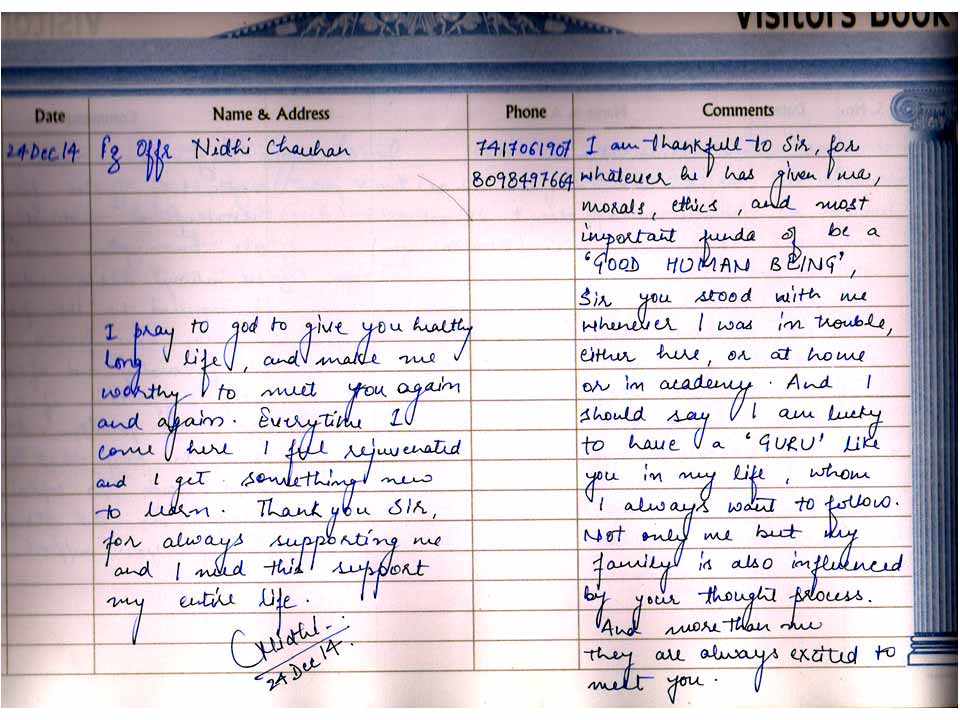 VISITORS BOOK
Date
Name & Address
Phone
Comments
24 Dec 14
Fg Offr Nidhi Chauhan
7417061907
8098497664
I am thankfull to Sir, for
whatever he has given me,
morals, ethics, and most
important funda of be a
'GOOD HUMAN BEING',
Sir you stood with me
whenever I was in trouble,
either here, or at home
or in academy. And I
should say I am lucky
to have a 'GURU' like
you in my life, whom
I always want to follow.
Not only me but my
family is also influenced
by your thought process.
And more than me
they are always excited to
meet you.
I pray to god to give you healthy
long life, and make me
worthy to meet you again
and again. Everytime I
come here I feel rejuvenated
and I get something new
to learn. Thank you Sir,
for always supporting me
and I need this support
my entire life.
Nidhi
24 Dec 14.